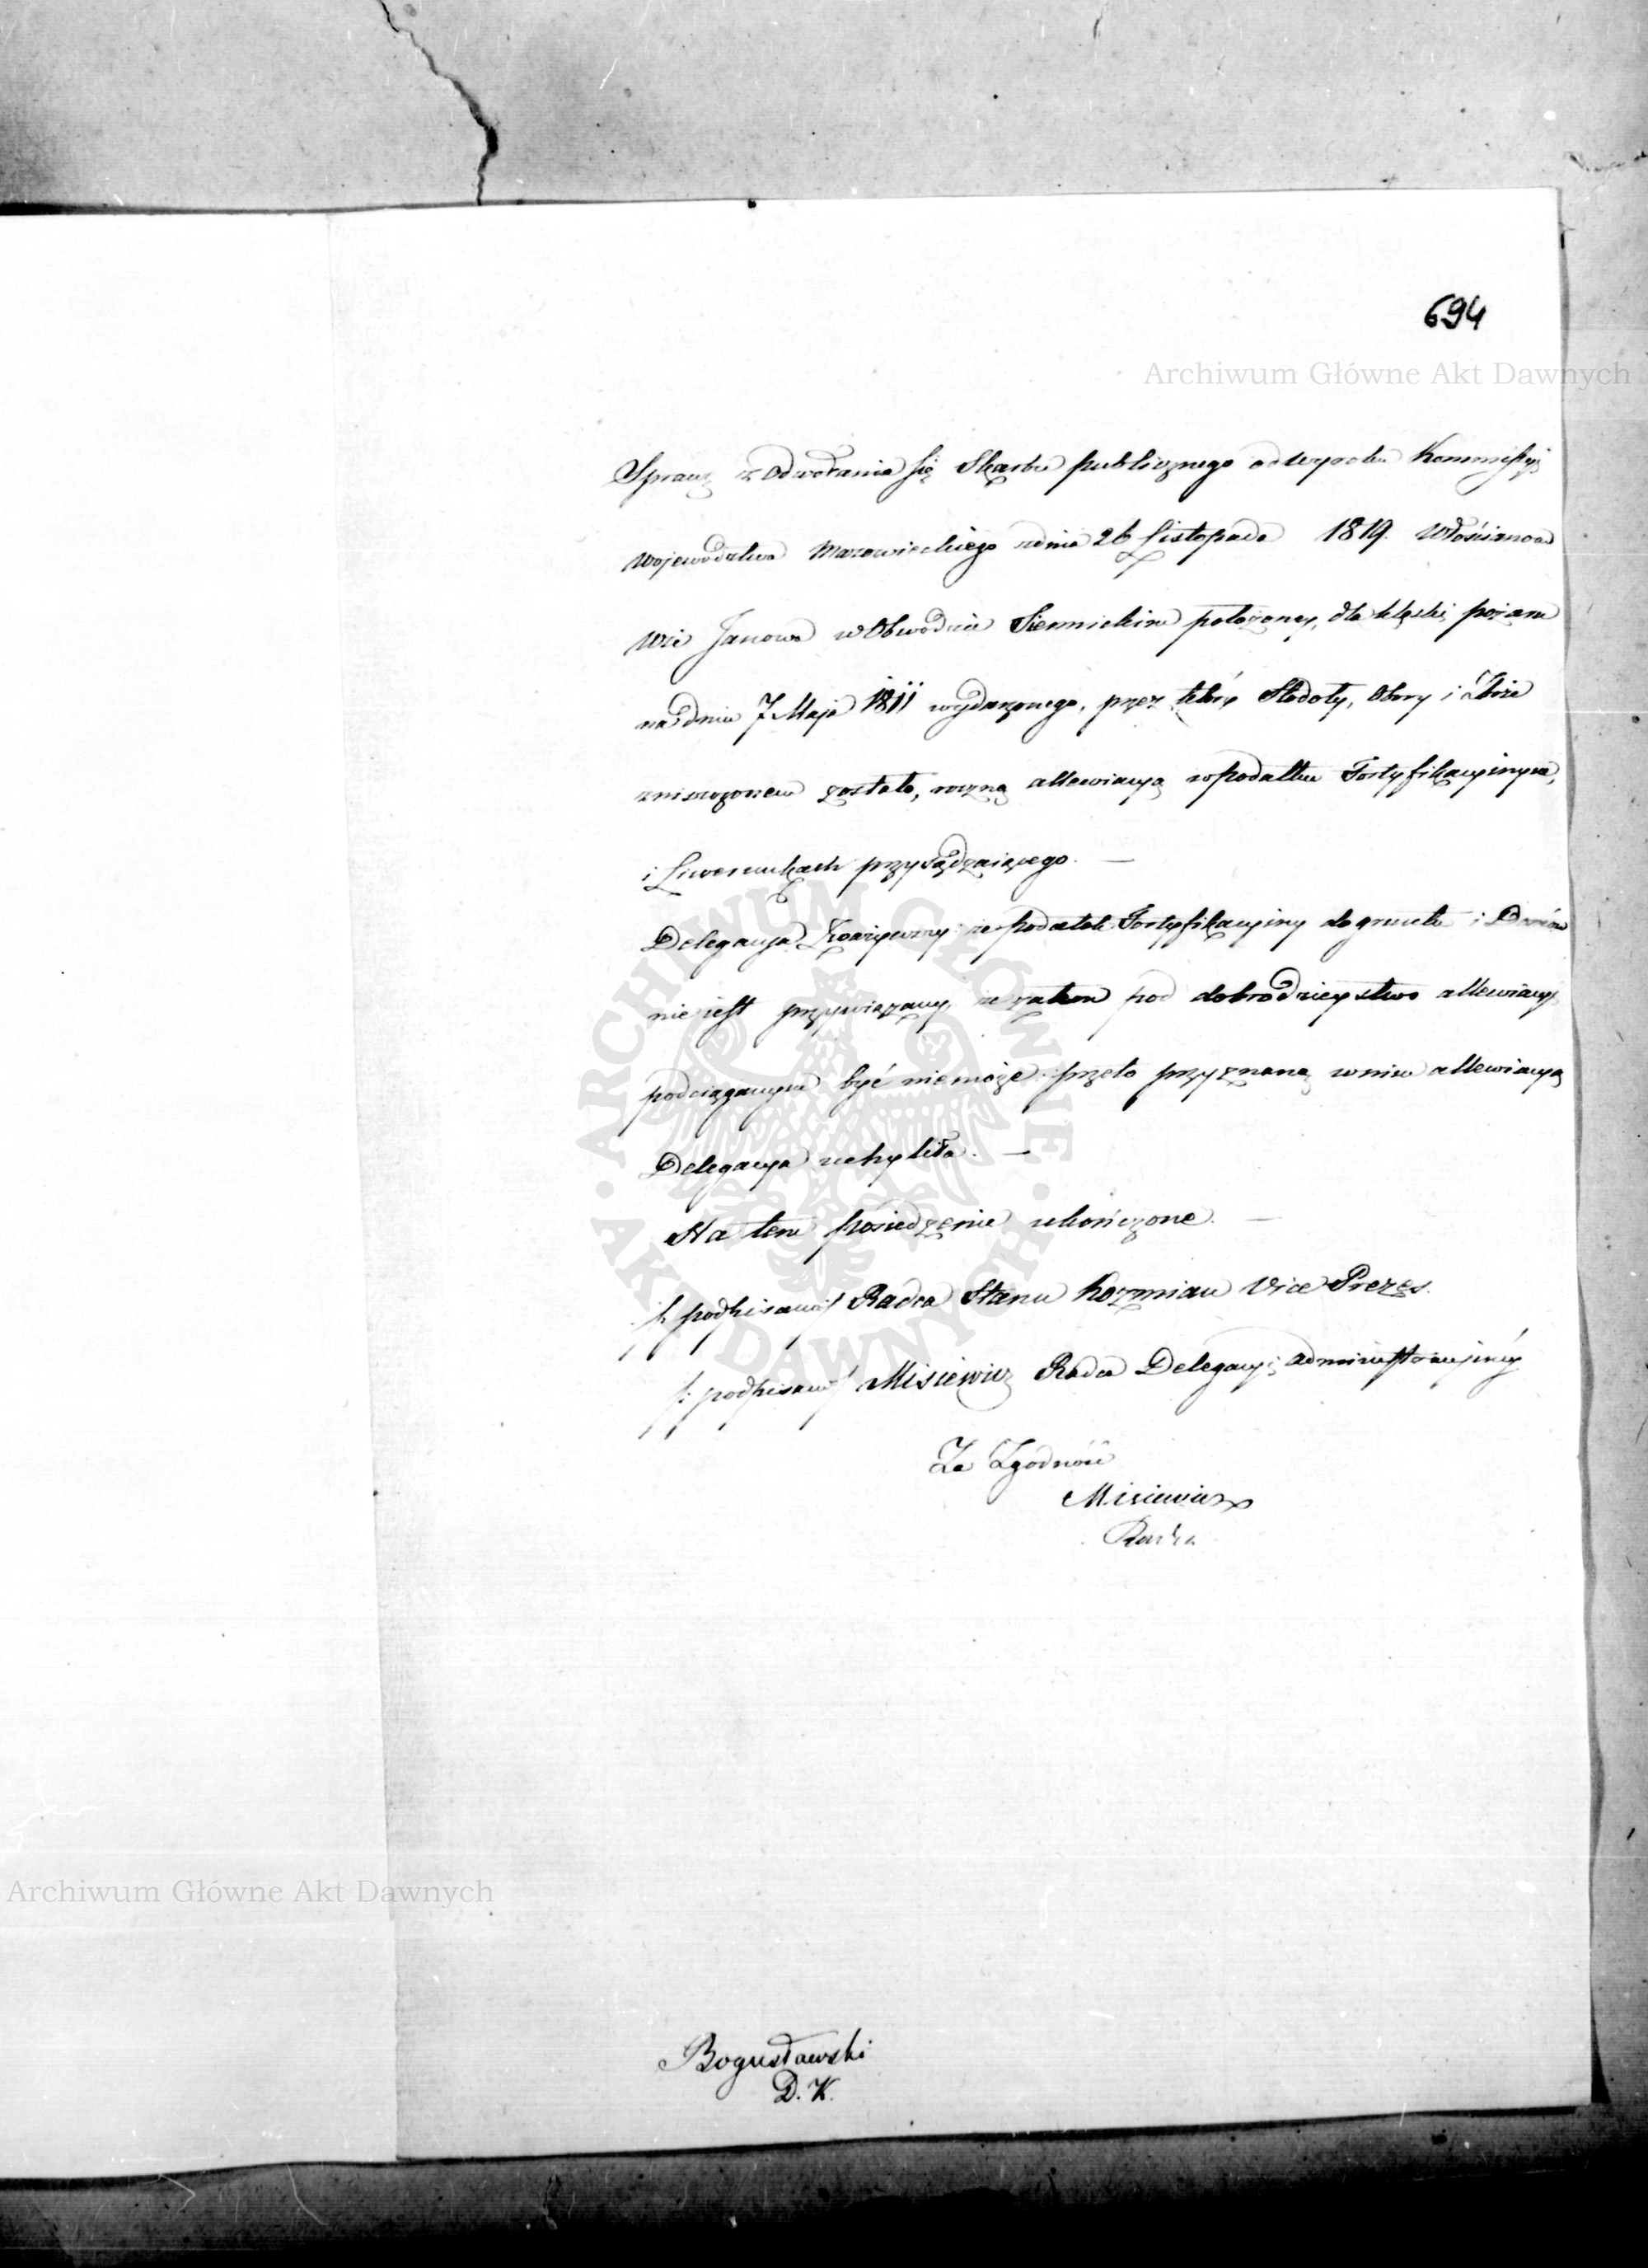 694
Archiwum Główne Akt Dawnych
Sprawę z Odwołania się Skarbu publicznego od Wyroku Kommissyi
Województwa Mazowieckiego z dnia 26 Listopada 1819. Włościanom
Wsi Janowa w Obwodzie Siennickim położoney, dla klęski pożaru
na dniu 7 Maja 1811 wydarzonego, przez którą Stodoły, Obory i Zboże
zniszczonem zostało, roczną allewiacyą w podatku Fortyfikacyinym,
i Liwerunkach przysądzaiącego. —
Delegacya Zważywszy: że podatek Fortyfikacyiny do gruntu i Domów
nie iest przywiązany, że zatem pod dobrodzieystwo allewiacyi
podciąganym być niemoże: przeto przyznaną w nim allewiacyą
Delegacya uchyliła. —
Na tem posiedzenie ukończone. —
/: podpisano/ Radca Stanu Kozmian Vice Prezes.
/: podpisano/ Misiewicz Radca Delegacyi administracyiney
Za Zgodność
Misiewicz
Radca
ARCHIWUM GŁÓWNE · AKT DAWNYCH ·
Archiwum Główne Akt Dawnych
Bogusławski
D. K.